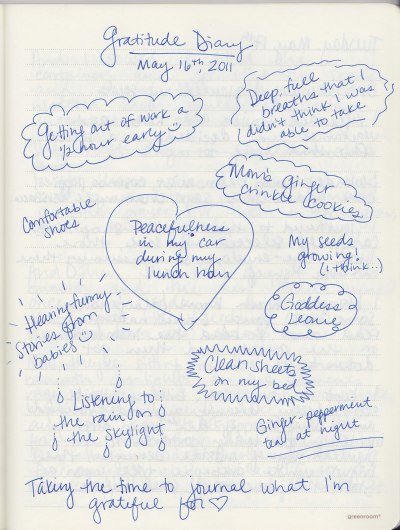 Gratitude Diary
May 16th, 2011
Getting out of work a
1/2 hour early
Deep, full
breaths that I
didn't think I was
able to take
Mom's Ginger
crinkle cookies
Comfortable
shoes
Peacefulness
in my car
during my
lunch hour
My seeds
growing!
(I think..)
Hearing funny
stories from
babies
Goddess
Leonie
Clean sheets
on my bed
Listening to
the rain on
the skylight
Ginger-peppermint
tea at night
Taking the time to journal what I'm
grateful for
greenroom